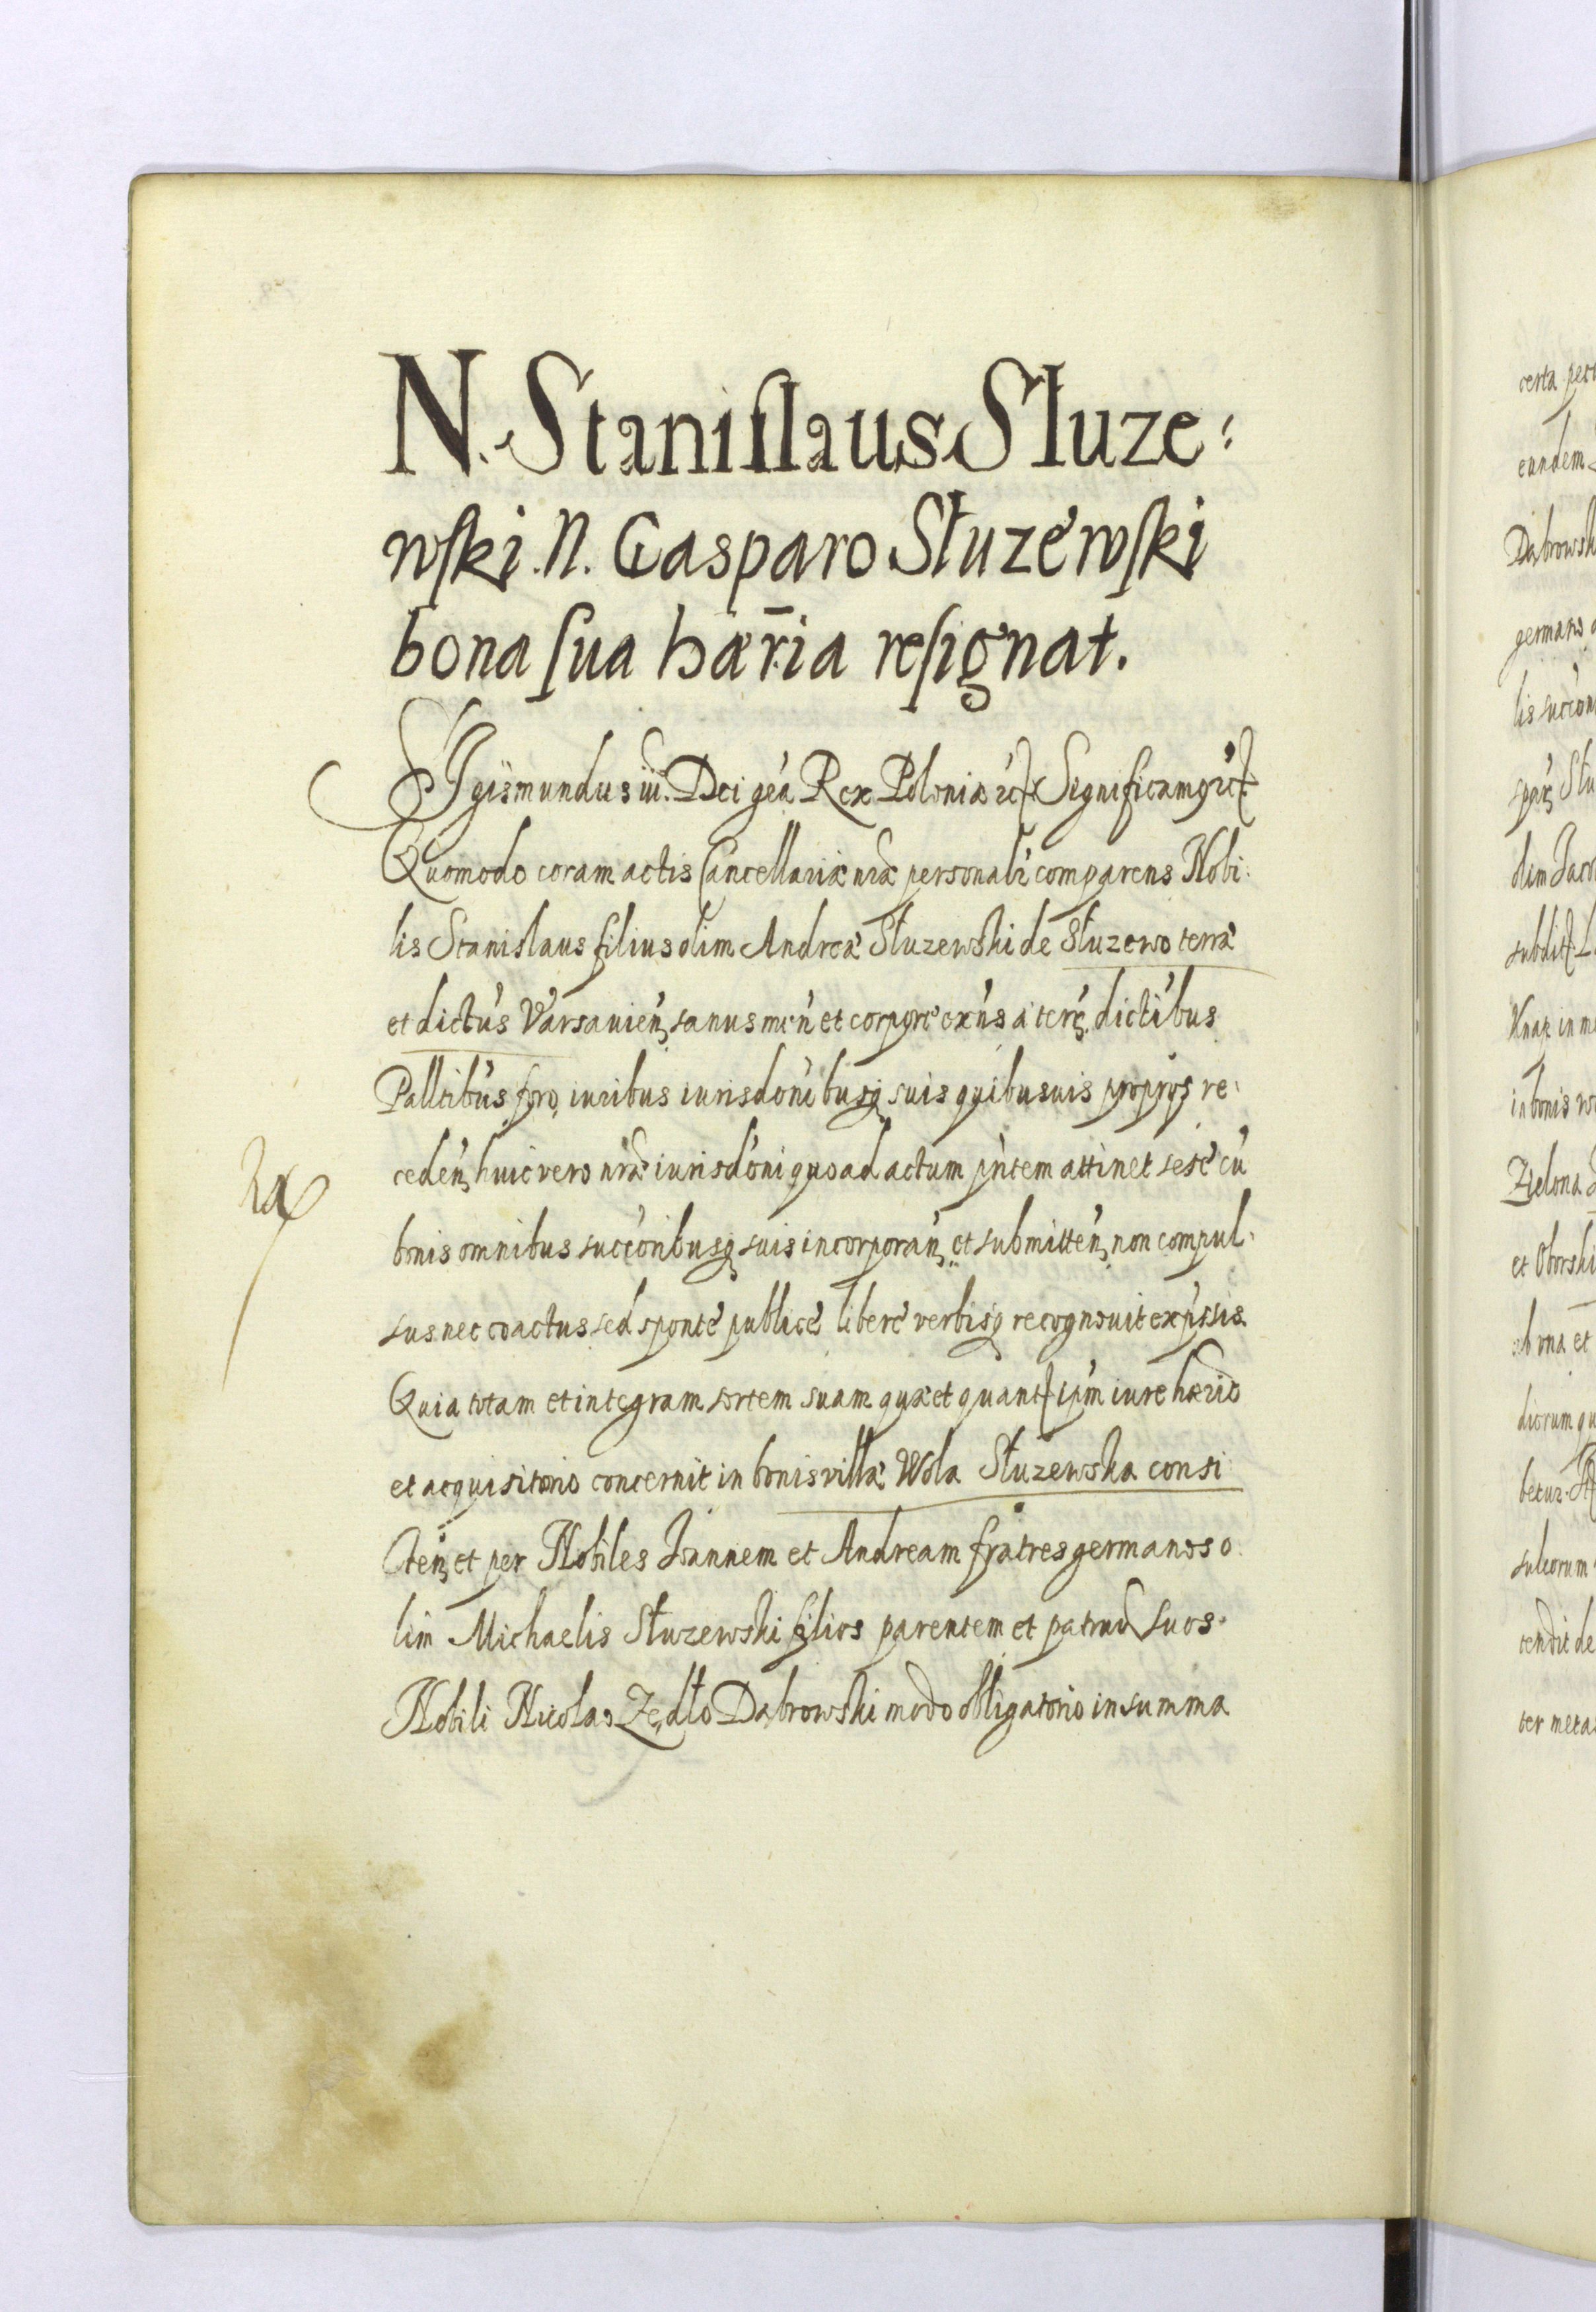 N. Staniſlaus Słuze:
wſki. N. Gasparo Słuzewſki
bona ſua hær̄ia reſignat.
Sigismundus iii. Dei gẽa Rex Poloniæ &c. Significamus &c.
Quomodo coram actis Cancellariæ nræ personalr̃ comparens Nobi:
lis Stanislaus filius olim Andreæ Słuzewski de Słuzewo terræ
et dictũs Varsavieñ, sanus meñ et corpore exñs a terẽ, dictĩbus
Pallĩtibus foro, iuribus iurisdoñibusq suis quibusuis proprys re:
cedeñ, huic vero nrã iurisdoñi quo ad actum pñtem attinet sese cũ
bonis omnibus succoribusq suis incorporañ, et submitteñ, non compul:
sus nec coactus sed sponte publice libere verbisq recognouit expr̃ssis
Quia totam et integram sortem suam quæ et quant ip̃m iure hærio
et acquisitorio concernit in bonis villæ Wola Słuzewska consi
steñ, et per Nobiles Joannem et Andream fratres germanos o.
lim Michaelis Słuzewski filios parentem et patruũ suos.
Nobili Nicolao Zędło Dąbrowski modo obligatorio in summa
certa
eundem
Dąbrowsk
germans
lis succon
dim Jaco
subdit
Knap in m
in bonis
Zielona
et Oborski
bona et
diorum qu
betur.
sulcorum
tendit de
ter metas